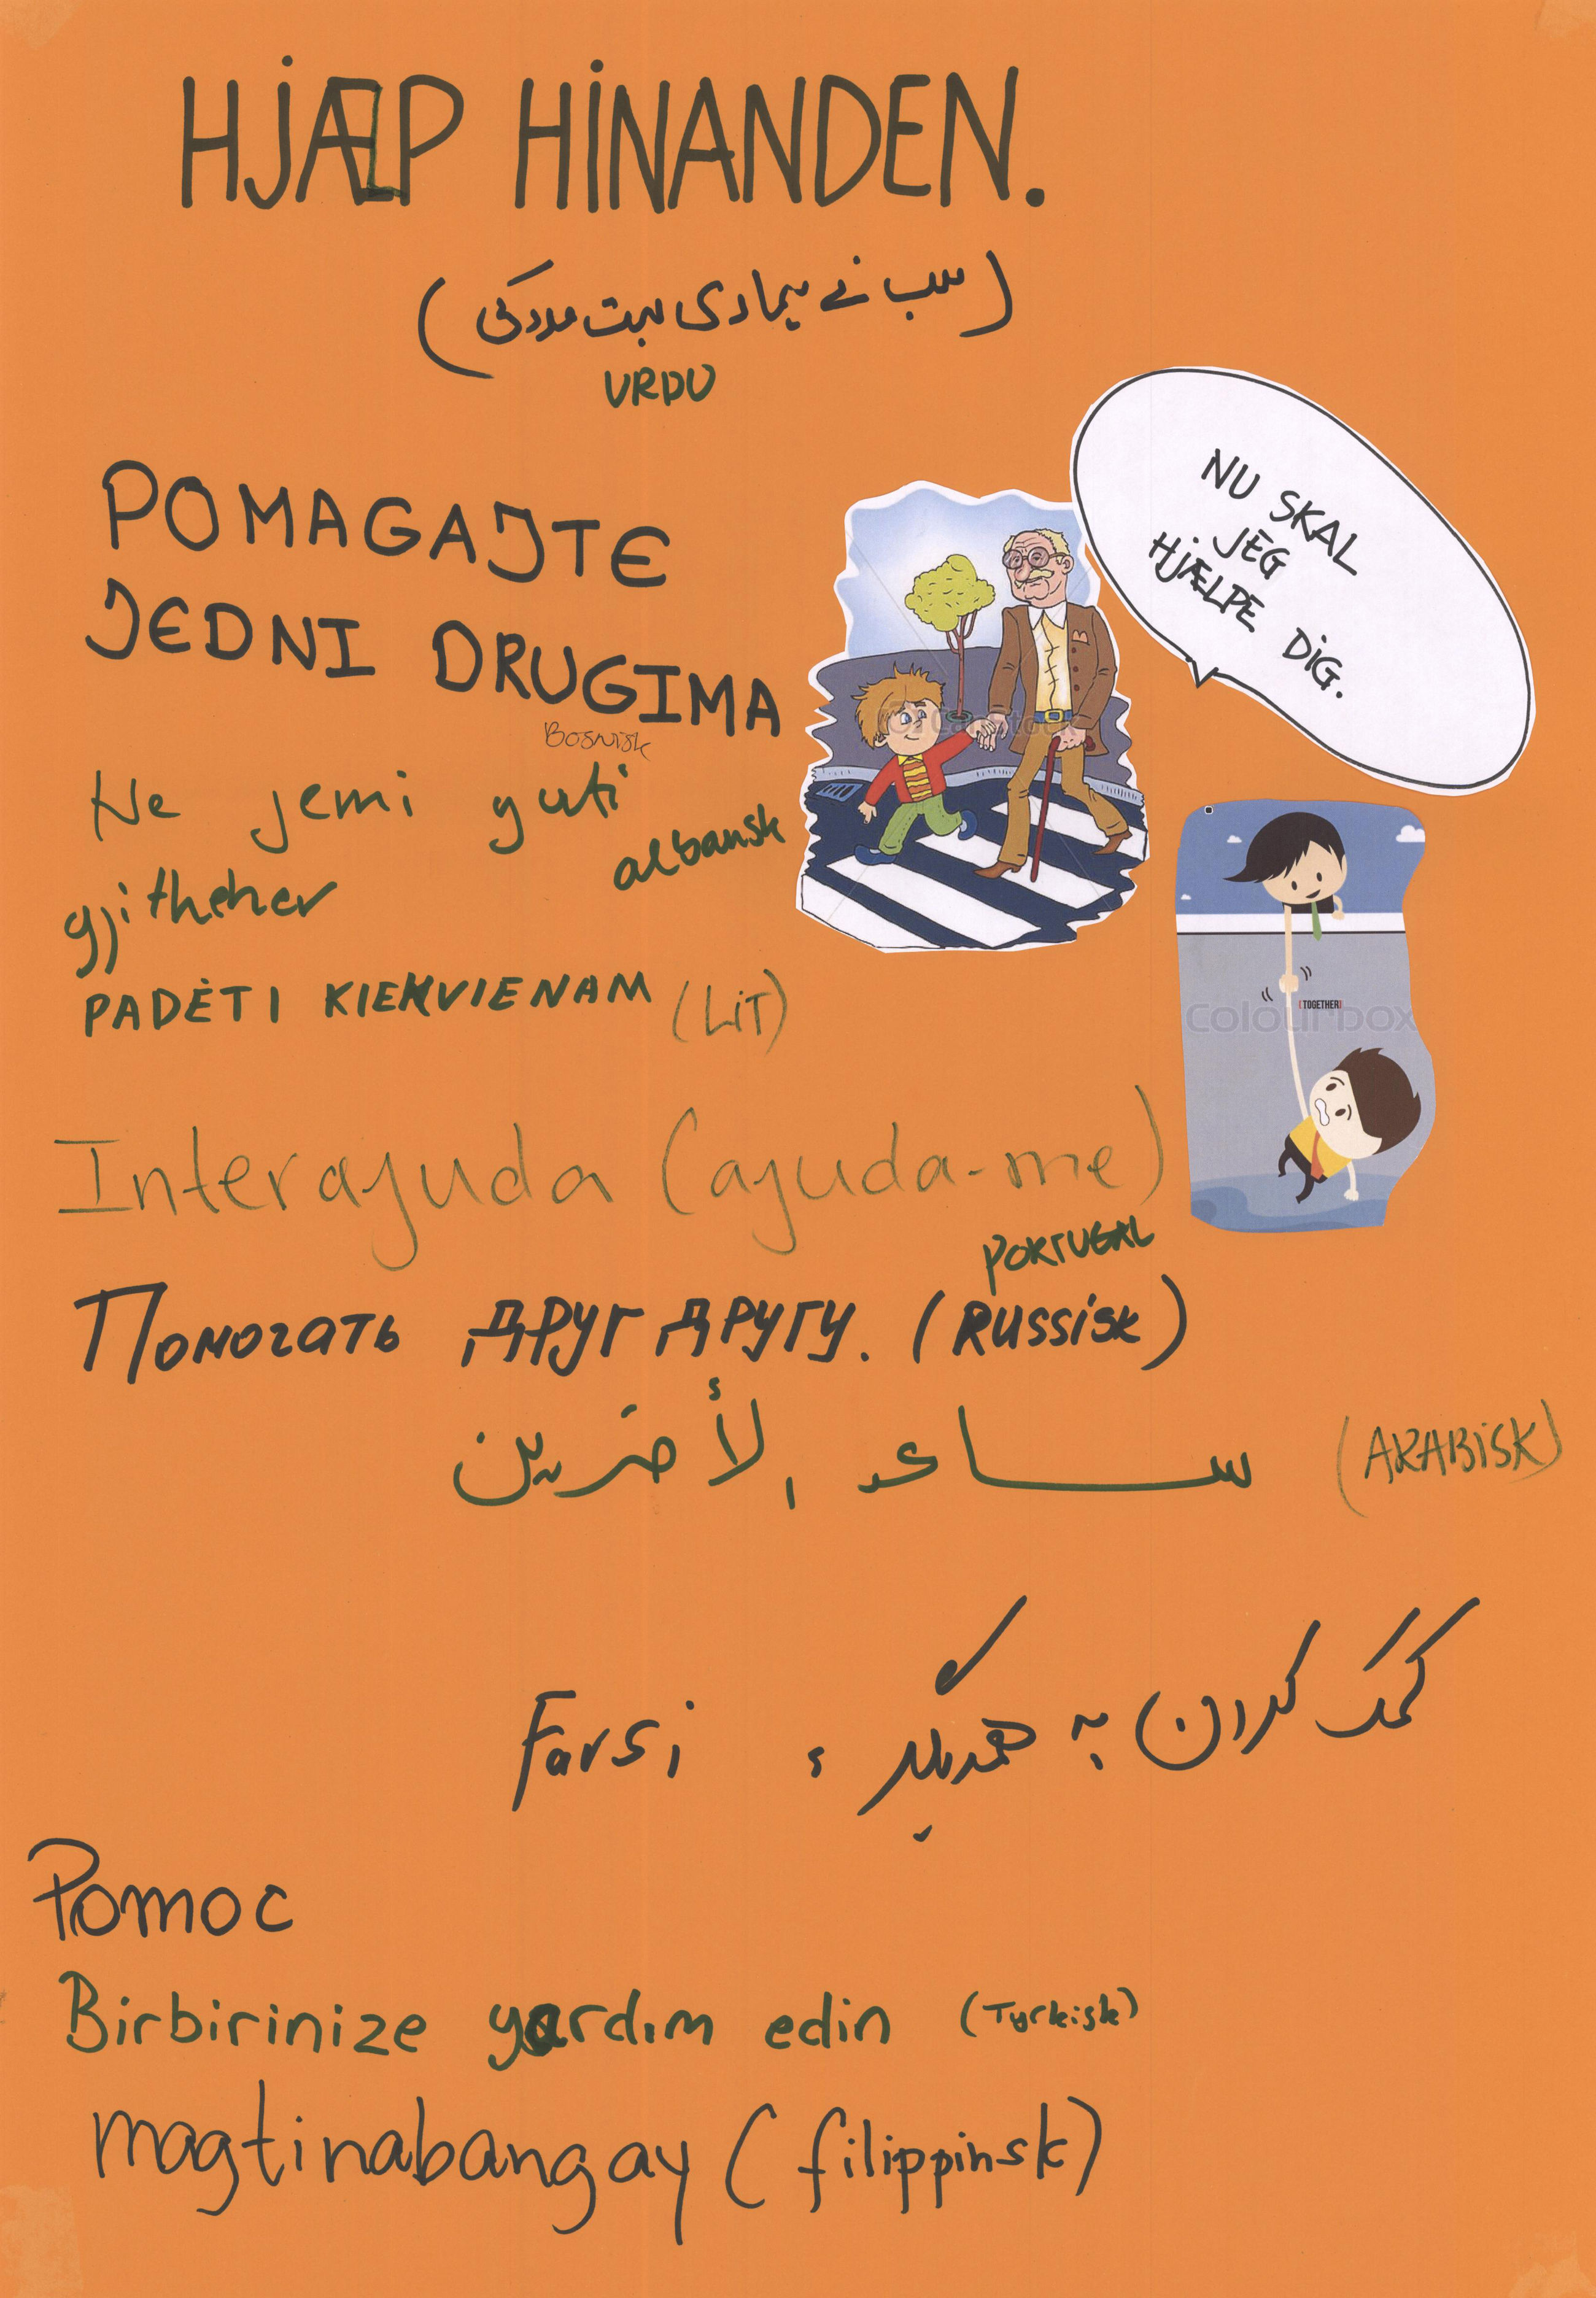 HJÆLP HINANDEN.
(سب نے بیماری بہت مدد کی)
URDU
POMAGAJTE
JEDNI DRUGIMA
Bosnisk
NU SKAL
JEG
HJÆLPE DIG.
Ne jemi guti
albansk
gjitheher
PADĖTI KIEKVIENAM (LIT)
(TOGETHER)
colourbox
Interajuda (ajuda-me)
PORTUGAL
Помогать друг другу. (RUSSISK)
ساعد الأخرين (ARABISK)
کمک کردن به همدیگر، Farsi
Pomoc
Birbirinize yardım edin (Tyrkisk)
magtinabangay (filippinsk)